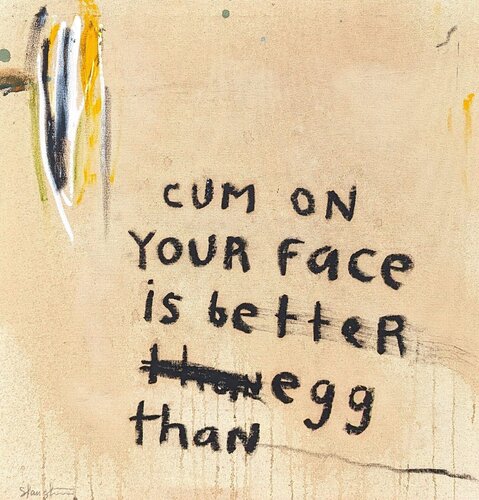 CUM ON
YOUR Face
is betteR
thaN egg
thaN